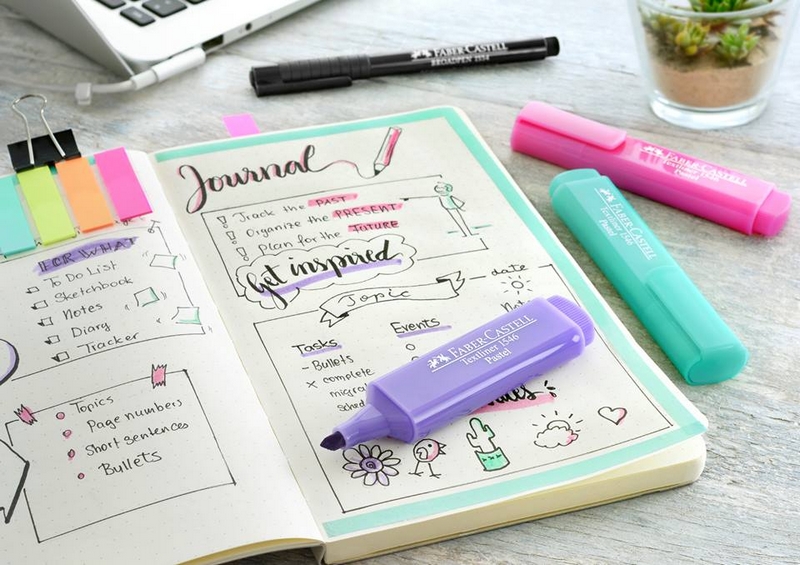 FOR WHAT
To Do List
Sketchbook
Notes
Diary
Tracker
Topics
Page numbers
Short sentences
Bullets
Journal
Track the PAST
Organize the PRESENT
Plan for the FUTURE
Get inspired
Topic
date
Tasks
- Bullets
x complete
Events
FABER-CASTELL
Textliner 1546
Pastel
FABER-CASTELL
BROADPEN 1554
FABER-CASTELL
Textliner
Pastel
FABER-CASTELL
Textliner 1546
Pastel